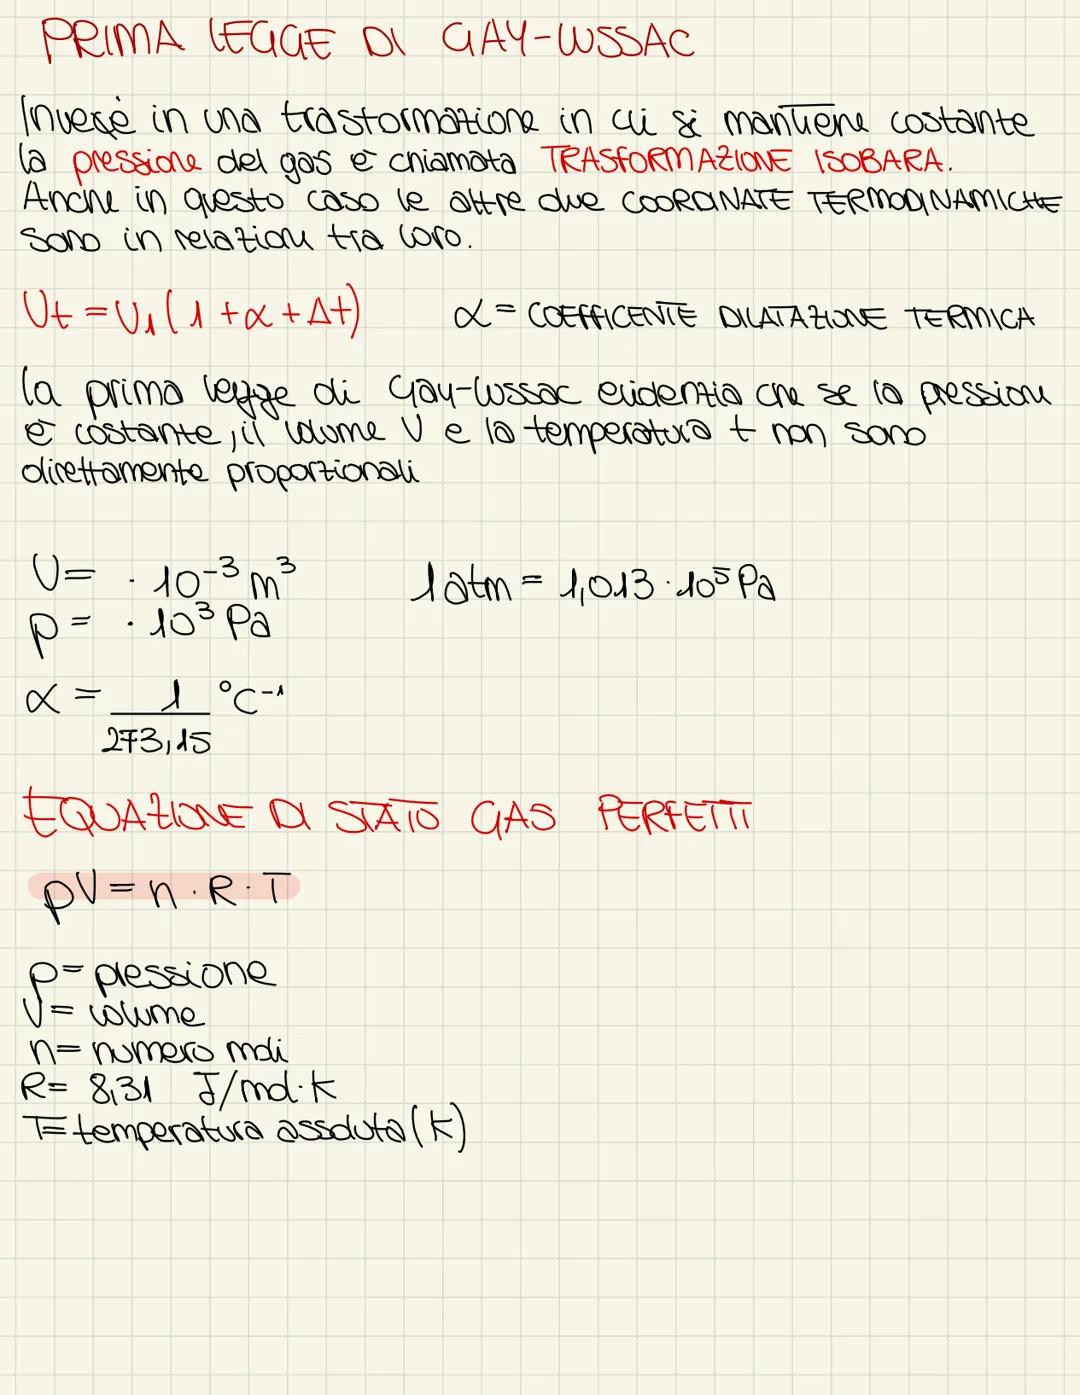 PRIMA LEGGE DI GAY-LUSSAC
Invece in una trasformazione in cui si mantiene costante
la pressione del gas è chiamata TRASFORMAZIONE ISOBARA.
Anche in questo caso le altre due COORDINATE TERMODINAMICHE
sono in relazione tra loro.
Vt = V1 (1 + α + Δt) α = COEFFICENTE DILATAZIONE TERMICA
La prima legge di Gay-Lussac evidenzia che se la pressione
è costante, il volume V e la temperatura t non sono
direttamente proporzionali
V= · 10⁻³ m³ 1 atm = 1,013 · 10⁵ Pa
p = · 10³ Pa
α = 1 °C⁻¹
273,15
EQUAZIONE DI STATO GAS PERFETTI
pV = n · R · T
p= pressione
V= volume
n= numero moli
R= 8,31 J/mol·K
T= temperatura assoluta (K)